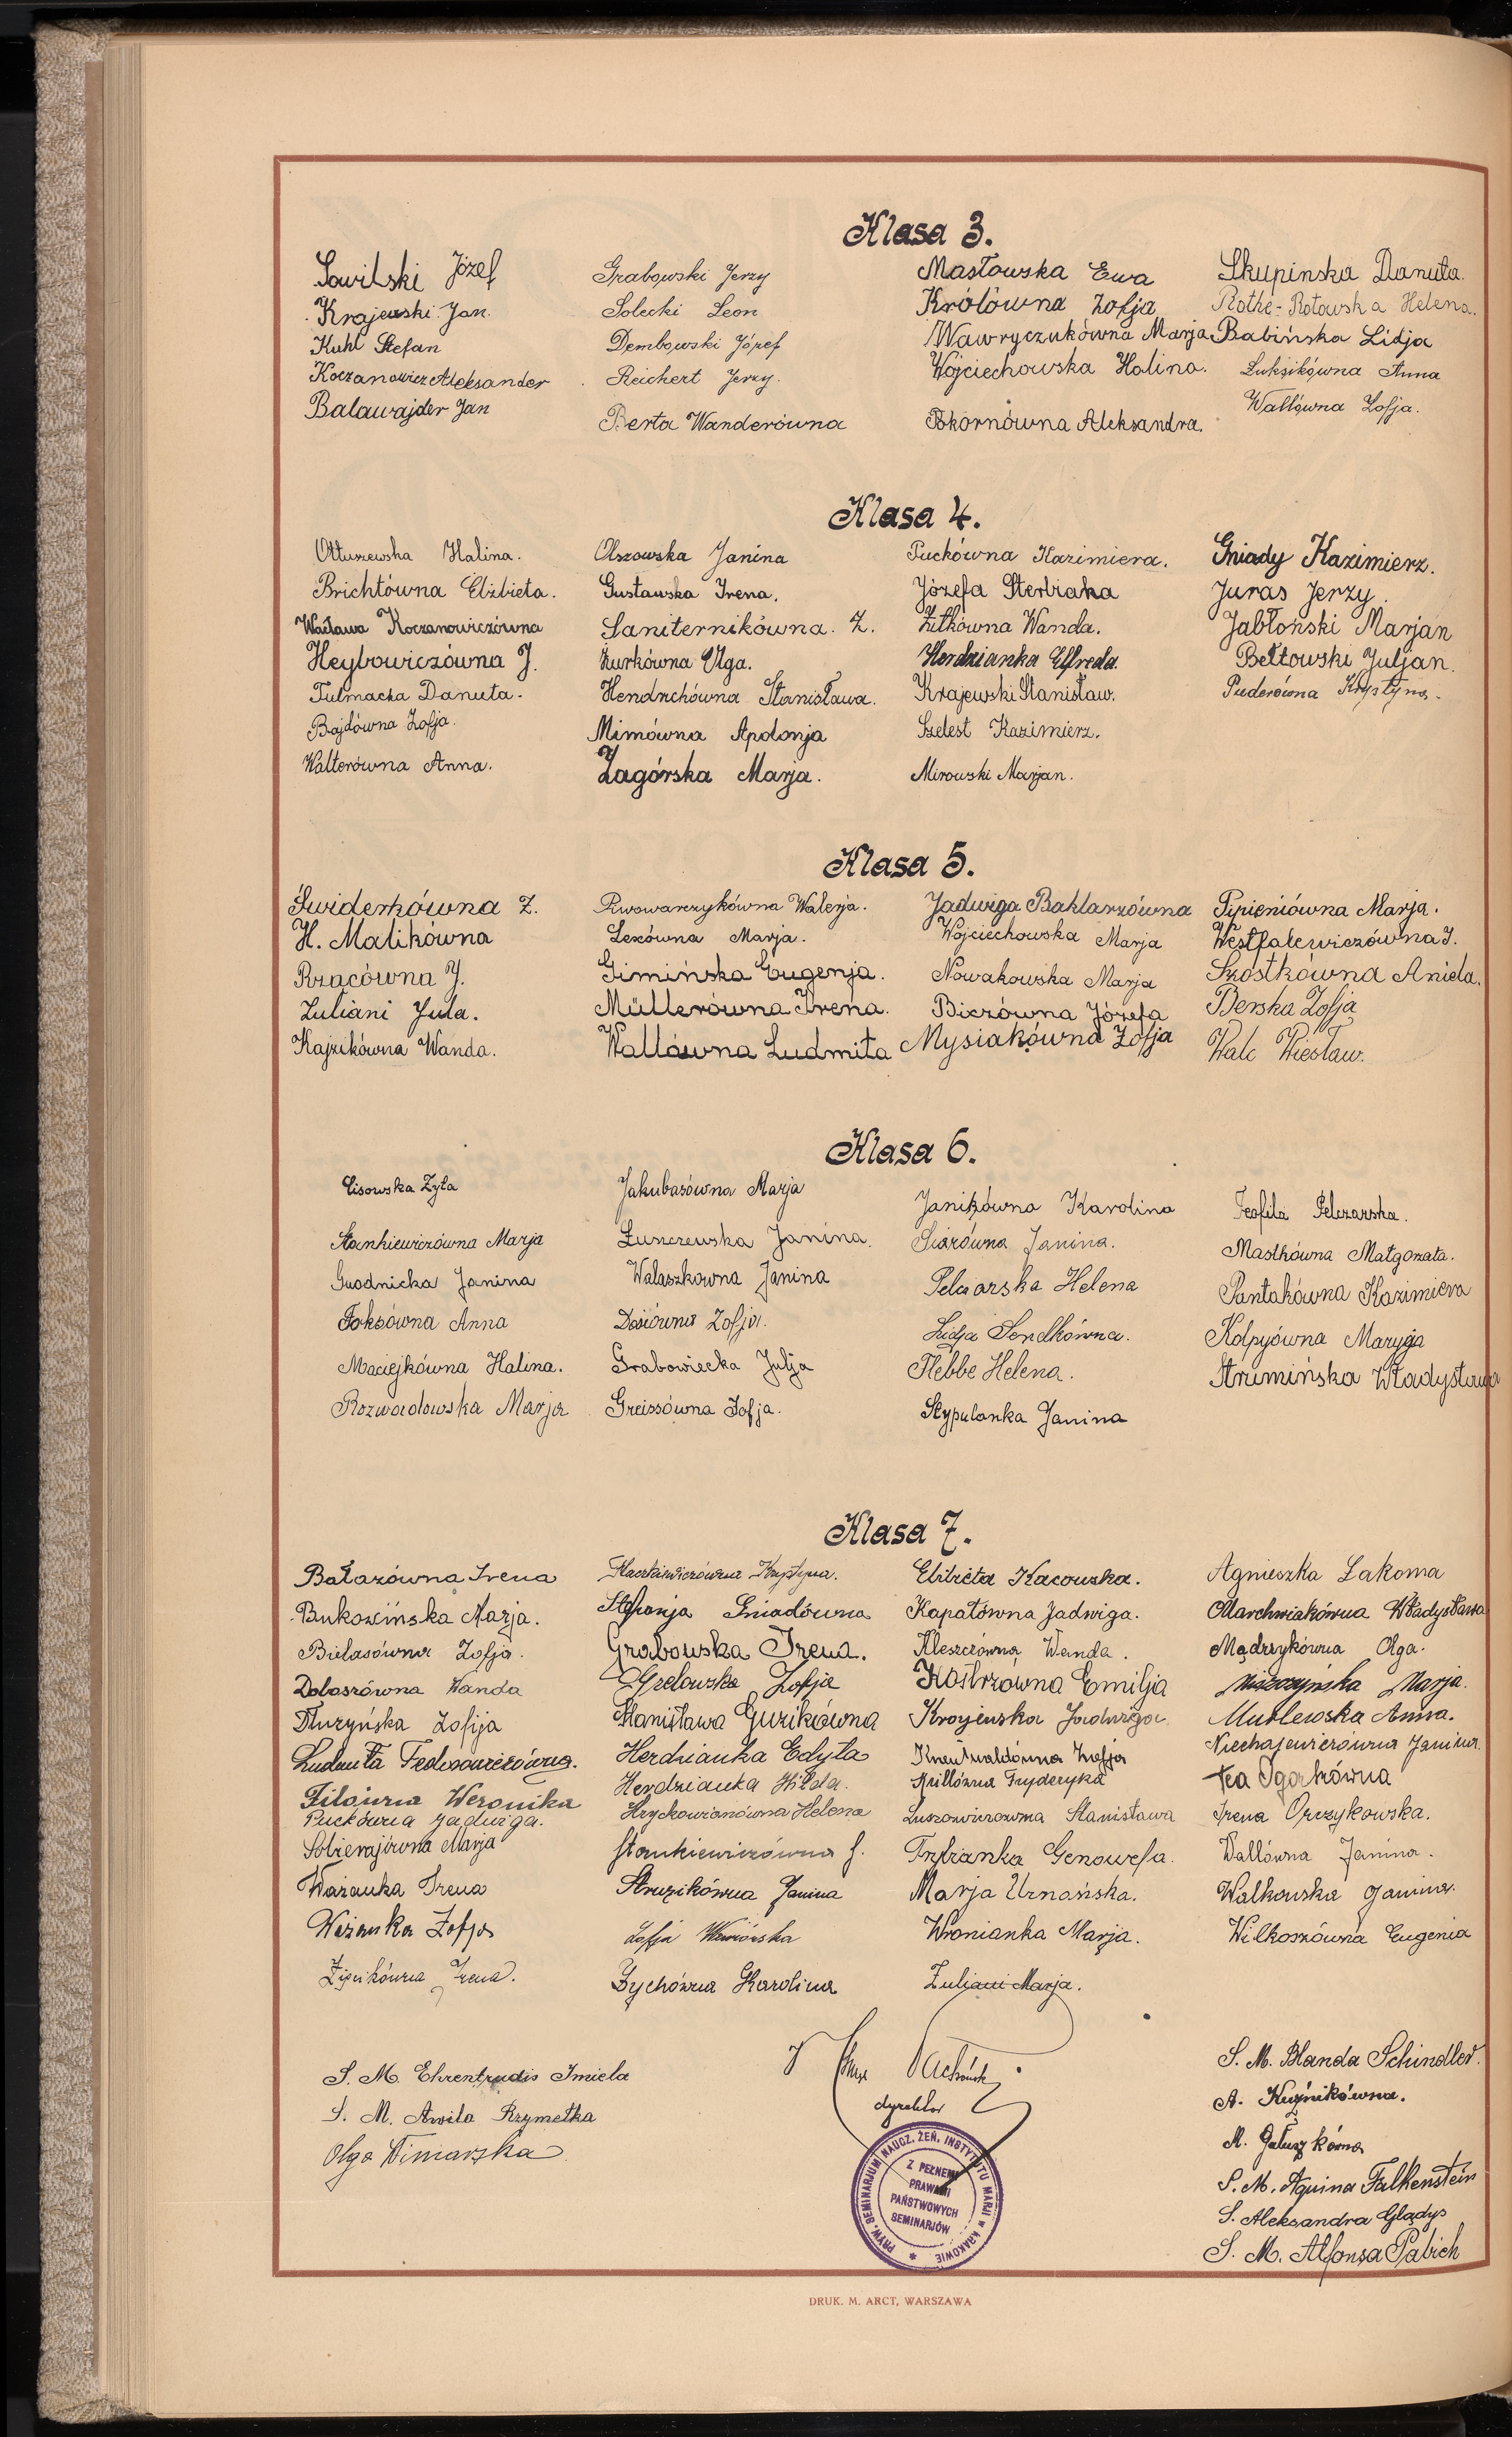 Klasa 3.
Sowilski Józef
Krajewski Jan.
Kuhl Stefan
Koczanowicz Aleksander
Balawajder Jan
Grabowski Jerzy
Solecki Leon
Dembowski Józef
Reichert Jerzy.
Berta Wanderówna
Masłowska Ewa
Królówna Zofja
Wawryczukówna Marja
Wojciechowska Halina.
Skórnówna Aleksandra.
Skupinska Danuta.
Rothe-Rotowska Helena.
Babińska Lidja
Łuksikówna Anna
Wallówna Zofja.
Klasa 4.
Ołtuszewska Halina.
Brichtówna Elżbieta.
Wacława Koczanowiczówna
Heybowiczówna J.
Tulmacka Danuta.
Bajdówna Zofja.
Walterówna Anna.
Olszowska Janina
Gustawska Irena.
Saniternikówna. Z.
Żurkówna Olga.
Hendrichówna Stanisława.
Mimówna Apolonja
Zagórska Marja.
Puckówna Kazimiera.
Józefa Sterbiaka
Zitkówna Wanda.
Herdzianka Elfreda.
Krajewski Stanisław.
Szelest Kazimierz.
Mirowski Marjan.
Gniady Kazimierz.
Juras Jerzy.
Jabłoński Marjan
Bełtowski Juljan.
Puderówna Krystyna.
Klasa 5.
Świderkówna Z.
H. Malikówna
Rzącówna J.
Zuliani Jula.
Kajzikówna Wanda.
Piwowarczykówna Walerja.
Lexówna Marja.
Gimińska Eugenja.
Müllerówna Irena.
Wallówna Ludmiła
Jadwiga Baklarzówna
Wojciechowska Marja
Nowakowska Marja
Biczówna Józefa
Mysiakówna Zofja
Pipieniówna Marja.
Westfalewiczówna J.
Szostkówna Aniela.
Berska Zofja
Walc Wiesław.
Klasa 6.
Cisowska Zyta
Stankiewiczówna Marja
Gwodnicka Janina
Foksówna Anna
Maciejkówna Halina.
Rozwadowska Marja
Jakubasówna Marja
Łuszczewska Janina.
Walaszkowna Janina
Dosiówna Zofja.
Grabowiecka Julja
Greissówna Zofja.
Janikówna Karolina
Siarówna Janina.
Pelczarska Helena
Lidja Sendkówna.
Plebbe Helena.
Stypulanka Janina
Teofila Pelczarska.
Mastkówna Małgorzata.
Pantakówna Kazimiera
Kołpyówna Maryja
Strumińska Władysława
Klasa 7.
Bałazówna Irena
Bukowińska Marja.
Bielasówna Zofja.
Doboszówna Wanda
Dłużyńska Zofija
Ludmiła Fedorowiczówna.
Filówna Weronika
Puckówna Jadwiga.
Sobierajówna Marja
Ważanka Irena
Ważanka Zofja
Zipsikówna Irena.
Krystyna.
Stefanja Gniadówna
Grabowska Irena.
Grelowska Zofja
Stanisława Guzikówna
Herdzianka Edyta
Herdzianka Hilda.
Hrychowianówna Helena
Stankiewiczówna J.
Struzikówna Janina
Zofja Wawiórska
Zychówna Karolina
Elżbieta Kacowska.
Kapałówna Jadwiga.
Kleszczówna Wanda.
Kostrzówna Emilja
Krojenska Jadwiga.
Kneutwaldówna Zofja
Krillówna Fryderyka
Luszowiczowna Stanisława
Trzbianka Genowefa.
Marja Urnańska.
Wronianka Marja.
Zuliani Marja.
Agnieszka Łakoma
Marchwiakówna Władysława
Mądrzykówna Olga.
Miszczyńska Marja.
Murlewska Anna.
Niechajewiczówna Janina.
Tea Ogorkówna
Irena Orczykowska.
Wallówna Janina.
Walkowska Janina.
Wilkoszówna Eugenia
S. M. Ehrentrudis Imiela
S. M. Awila Rzymełka
Olga Winiarska
dyrektor
PRYW. SEMINARJUM NAUCZ. ŻEŃ. INSTYTUTU MARJI w KRAKOWIE
Z PEŁNEMI
PRAWAMI
PAŃSTWOWYCH
SEMINARJÓW
S. M. Blanda Schindler.
A. Kuźnikówna.
M. Gałuszkówna
S. M. Aquina Falkenstein
S. Aleksandra Glądys
S. M. Alfonsa Pabich
DRUK. M. ARCT, WARSZAWA